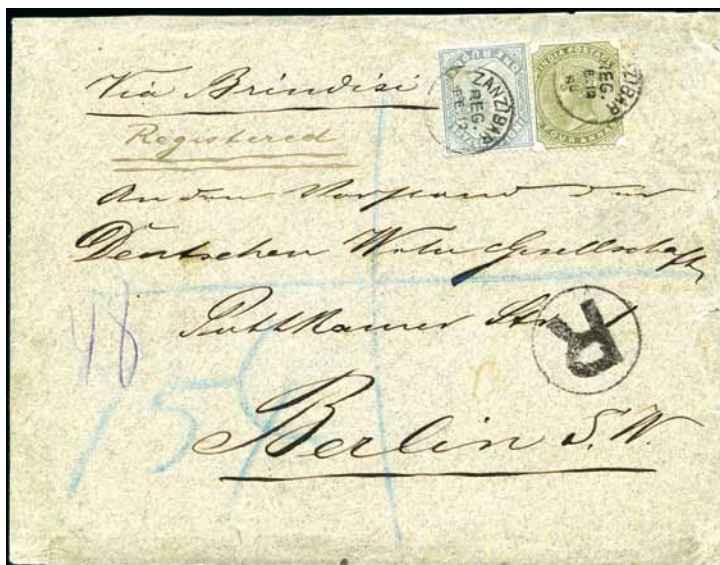 Via Brindisi
Registered
ONE RUPEE
ZANZIBAR
REG.
FE 12
INDIA POSTAGE
FOUR ANNAS
ZIBAR
REG.
An den Vorstand der
Deutschen Witu Gesellschaft
Puttkamer Str 1
R
48
Berlin S.W.